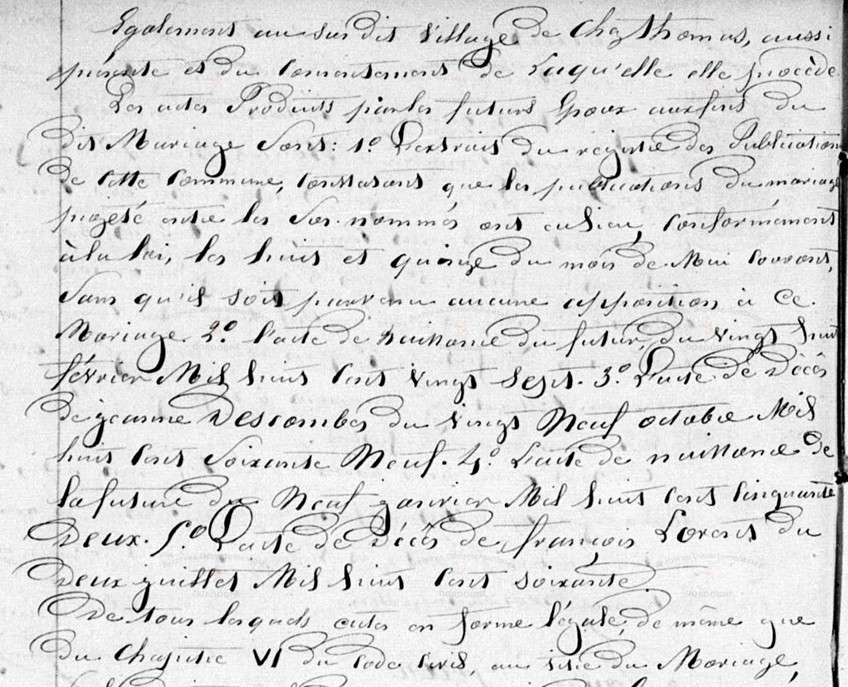 Egalement au sus dit Village de Chez Thomas, aussi
présente et du Consentement de Laqu'elle elle procède
Les actes Produits par les futurs Epoux aux fins du
dit Mariage Sont: 1º L'extrait du registre des Publications
de cette Commune, Constatant que les publications du mariage
projeté entre les Sus-nommés ont eu lieu, Conformément
à la loi, les huit et quinze du mois de Mai Courant,
Sans qu'il soit parvenu aucune opposition à Ce
Mariage. 2º l'acte de naissance du futur, du Vingt huit
février Mil huit Cent Vingt Sept. 3º L'acte de Décès
de jeanne Descombes du Vingt Neuf octobre Mil
huit Cent Soixante Neuf. 4º L'acte de naissance de
la future du Neuf janvier Mil huit Cent Cinquante
Deux. 5º L'acte de Décès de françois Lorent du
Deux juillet Mil huit Cent soixante
De tous lesquels actes en forme légale, de même que
du Chapitre VI du Code Civil, au titre du Mariage,